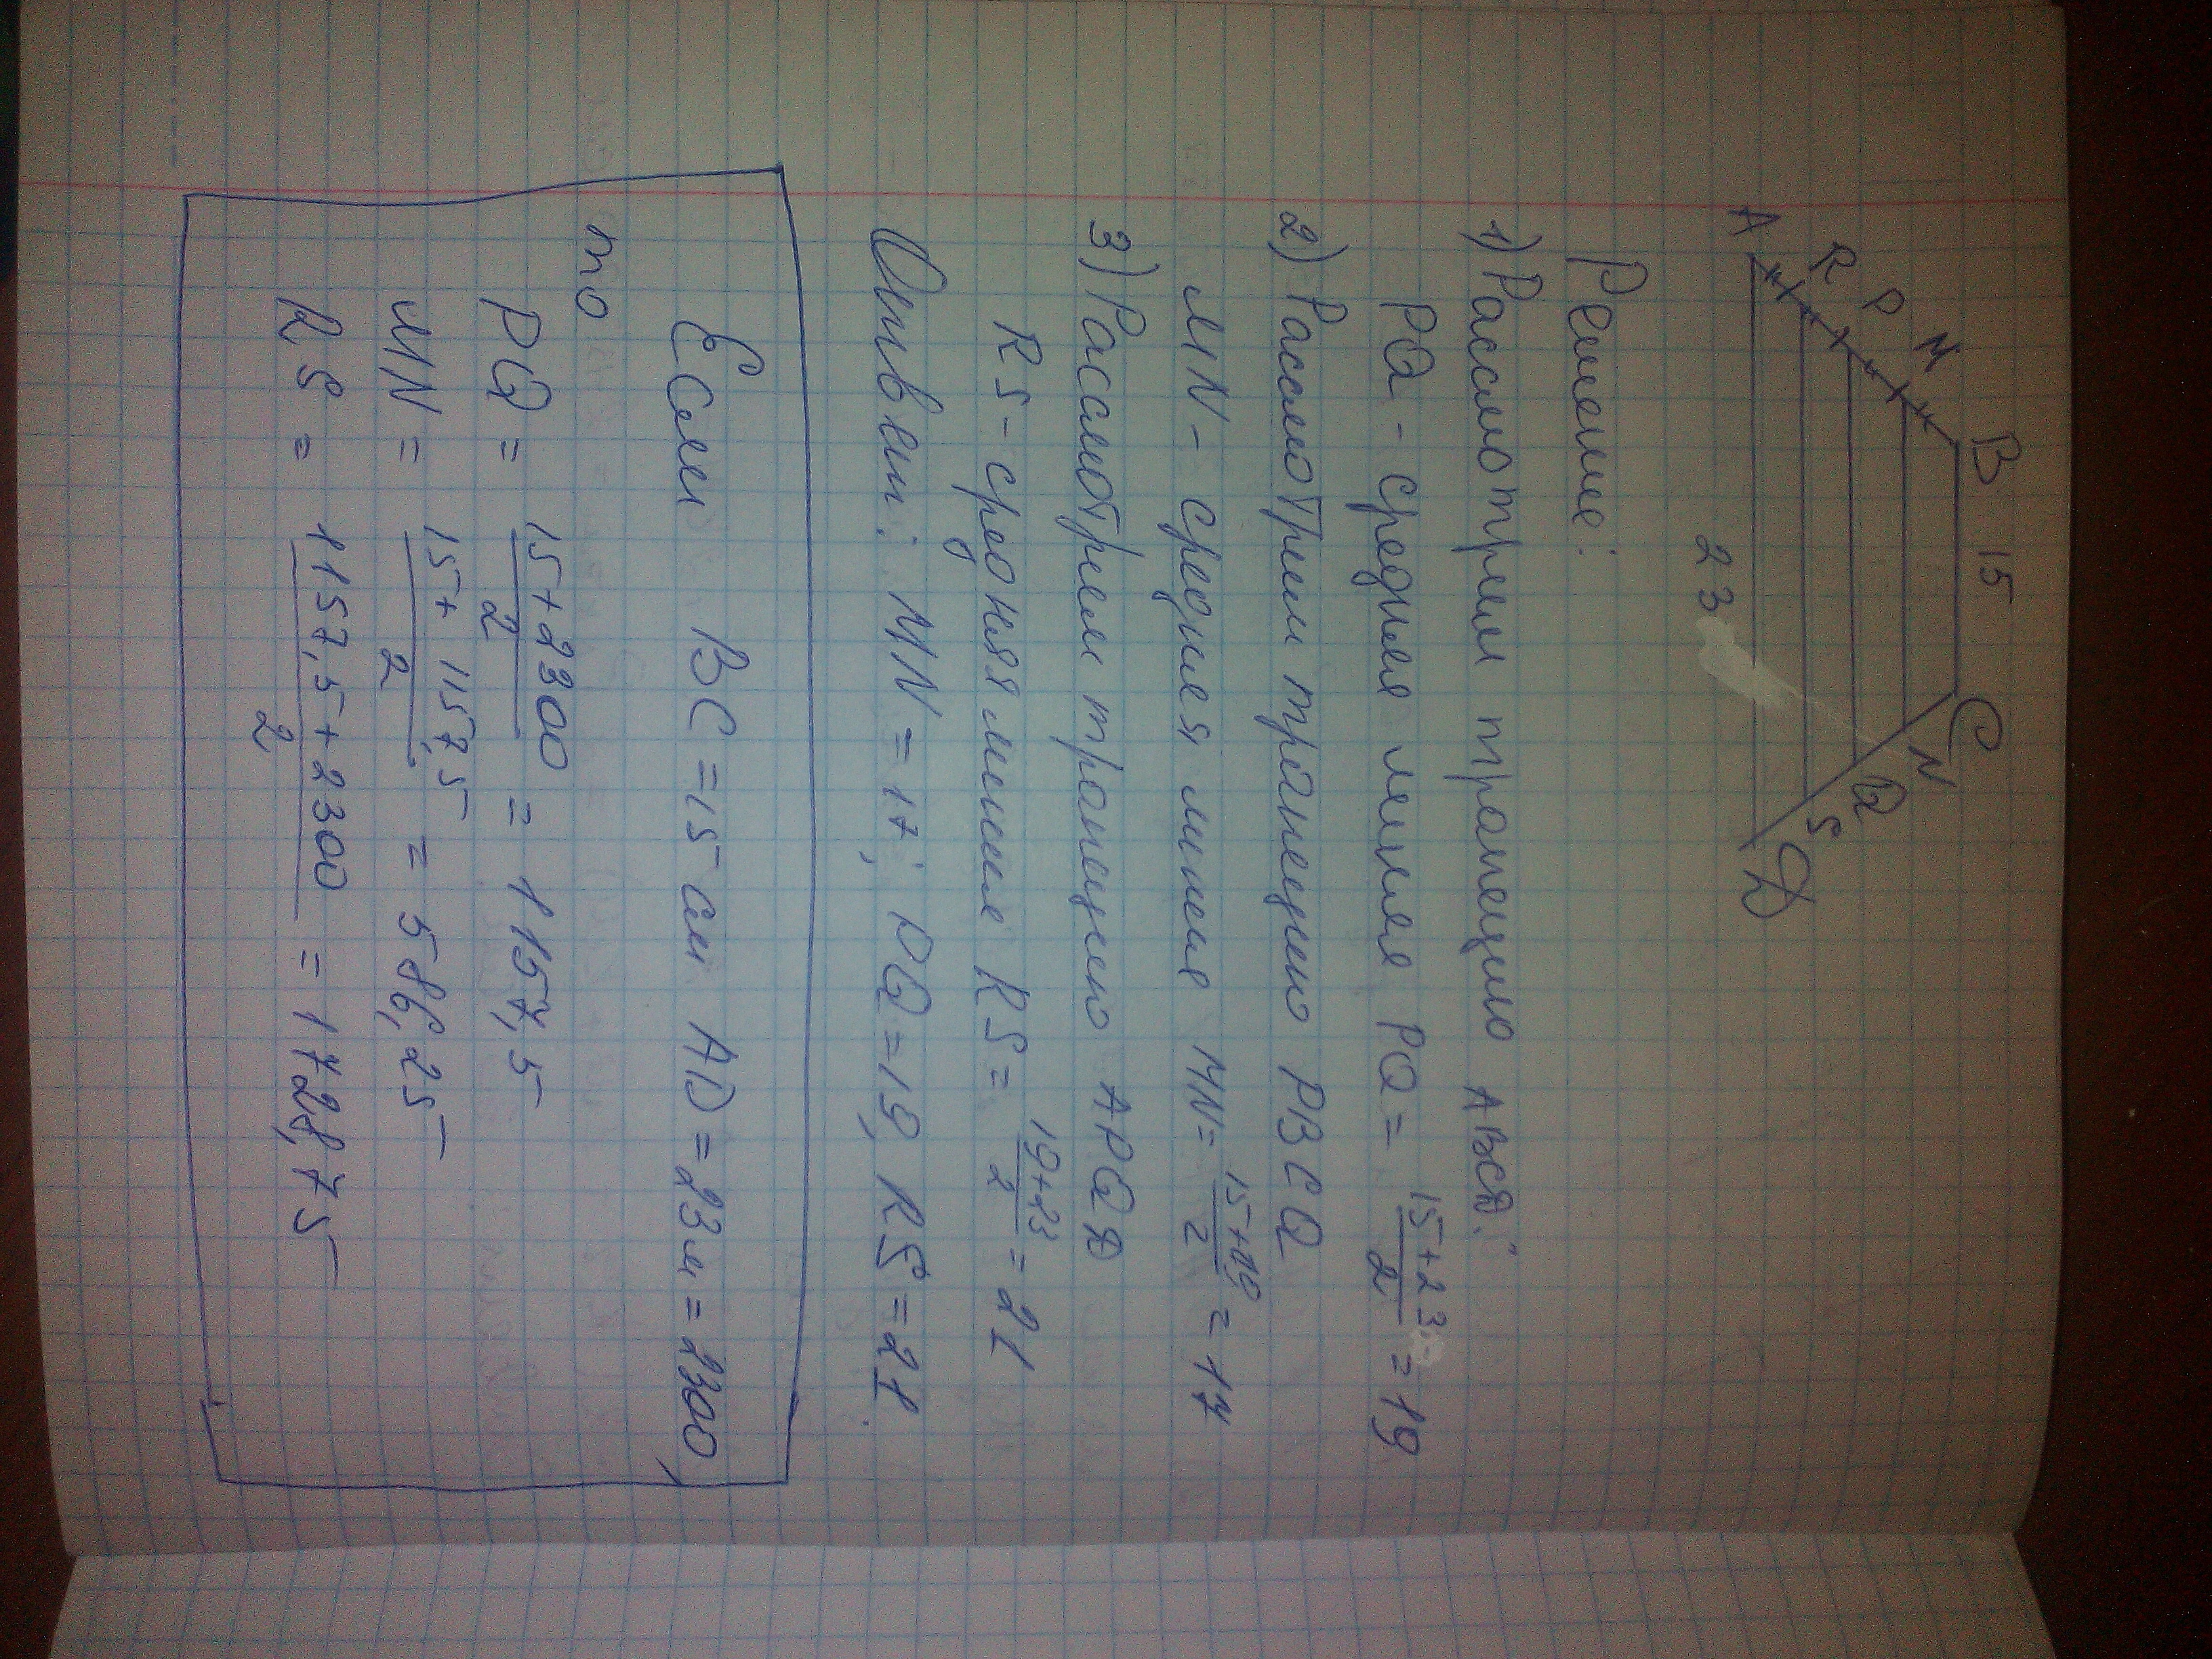 B 15 C
M N
P Q
R S
A 23 D
Решение:
1) Рассмотрим трапецию ABCD:
PQ - средняя линия PQ = \frac{15+23}{2} = 19
2) Рассмотрим трапецию PBCQ
MN - средняя линия MN = \frac{15+19}{2} = 17
3) Рассмотрим трапецию APQD
RS - средняя линия RS = \frac{19+23}{2} = 21
Ответ: MN = 17; PQ = 19, RS = 21.
Если BC = 15 см AD = 23 м = 2300,
то
PQ = \frac{15+2300}{2} = 1157,5
MN = \frac{15+1157,5}{2} = 586,25
RS = \frac{1157,5+2300}{2} = 1728,75